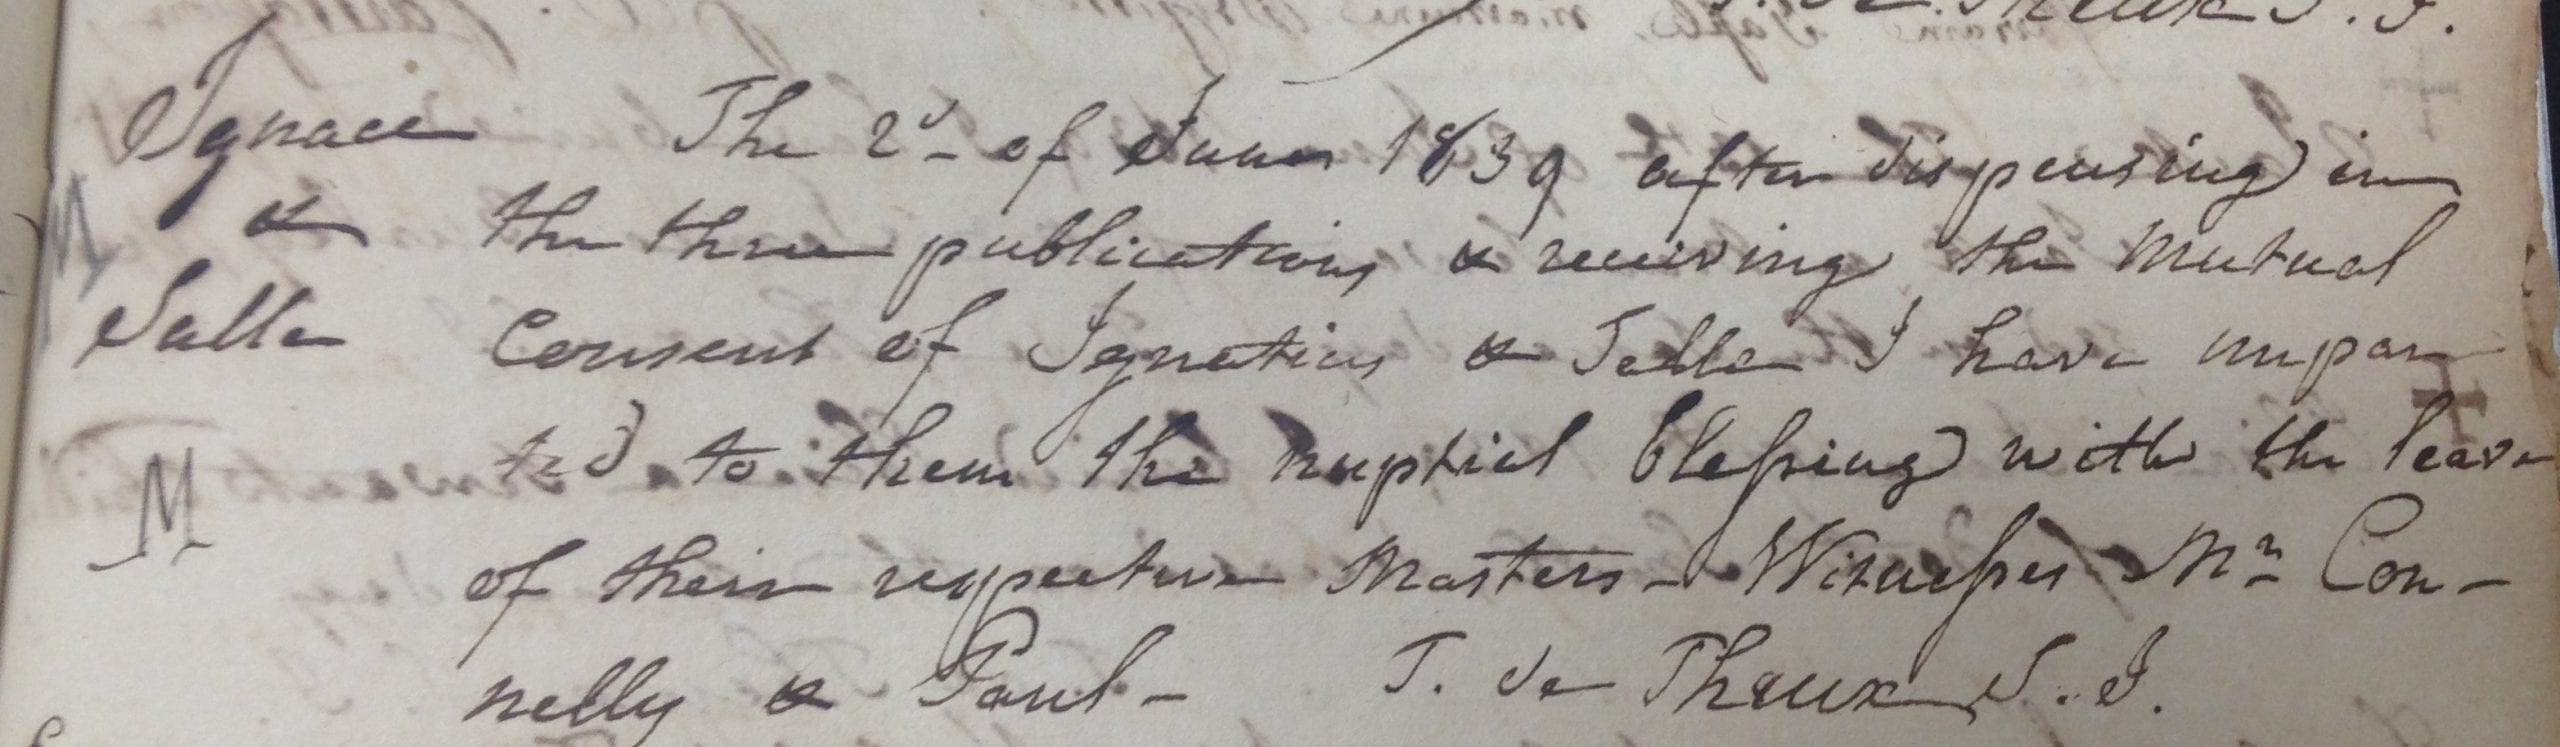 T. de Theux S. J.
Ignace The 2d of June 1839 after dispensing in
& the three publications & receiving the Mutual
Salle Consent of Ignatius & Selle I have impar
ted to them the nuptial blessing with the leave
M of their respective Masters - Witnesses Mr Con-
nelly & Paul - T. de Theux S. J.